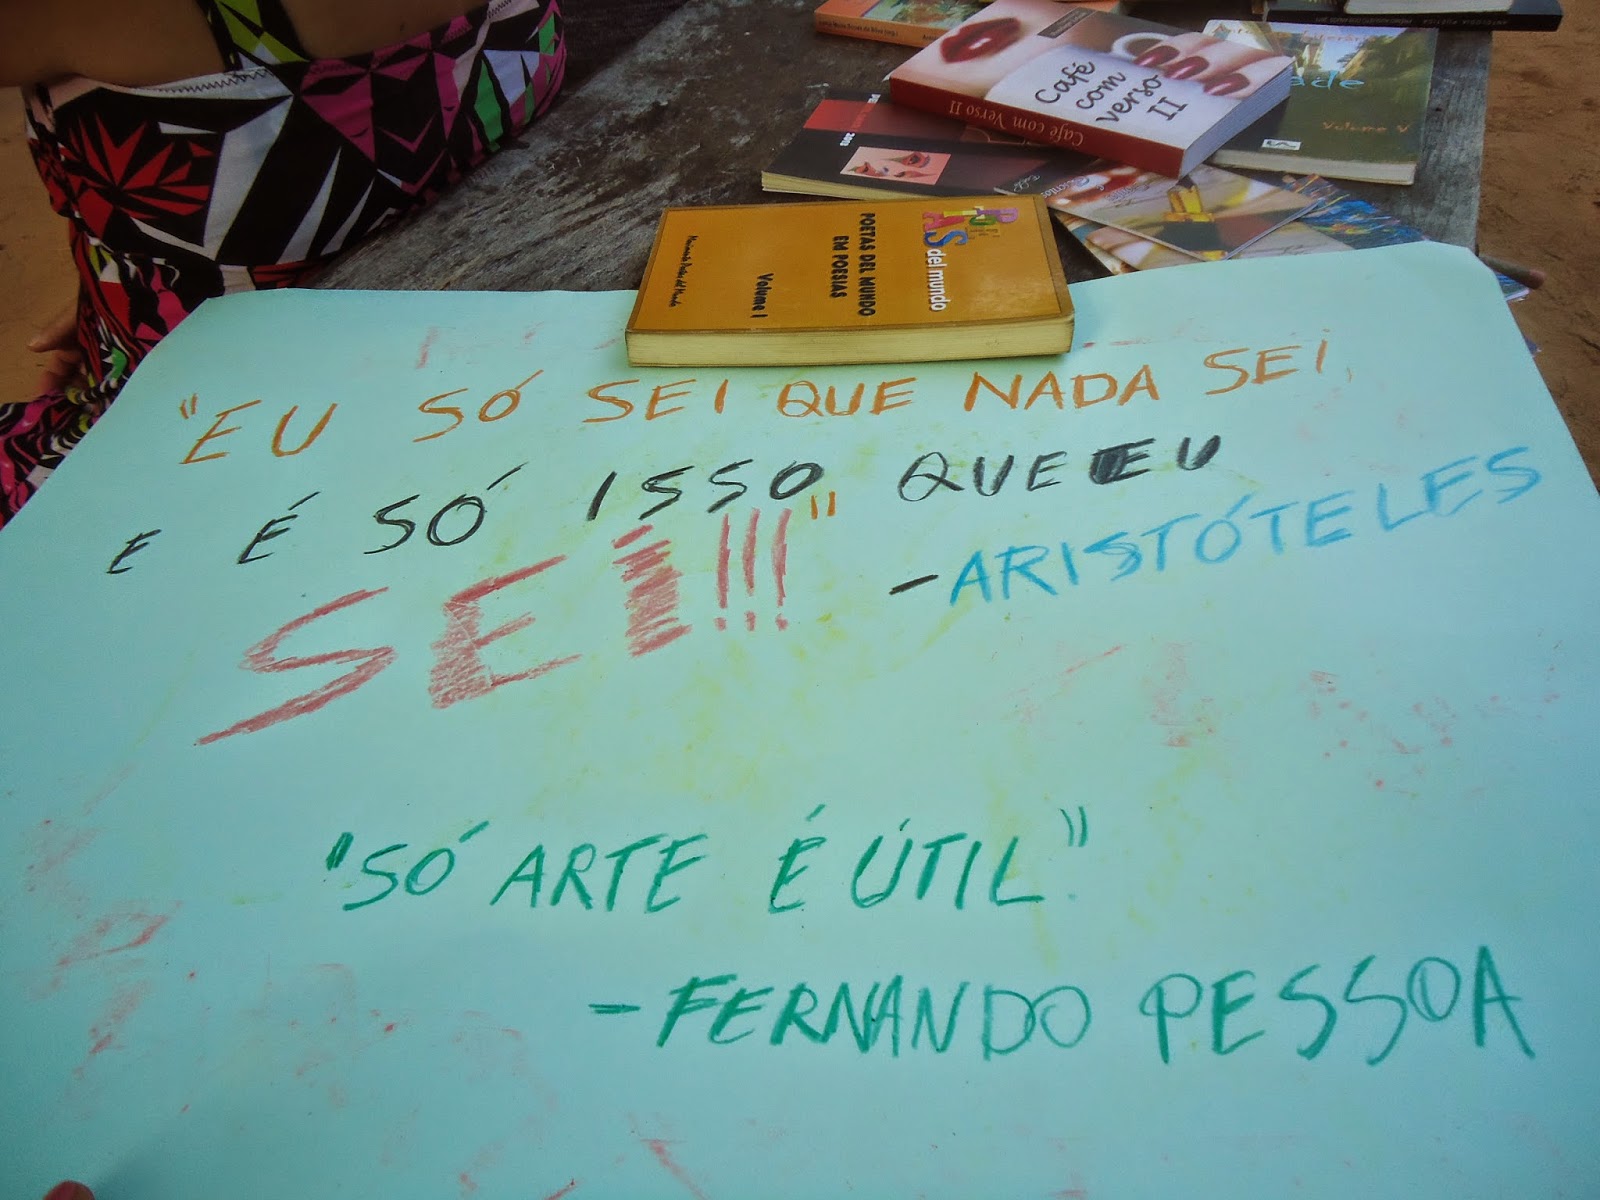 Café
com
verso
II
Café com Verso II
ade
Volume V
2013
POETAS
del mundo
POETAS DEL MUNDO
EM POESIAS
Volume I
"EU SÓ SEI QUE NADA SEI,
E É SÓ ISSO QUE EU
SEI!!!"
-ARISTÓTELES
"SÓ ARTE É ÚTIL."
-FERNANDO PESSOA